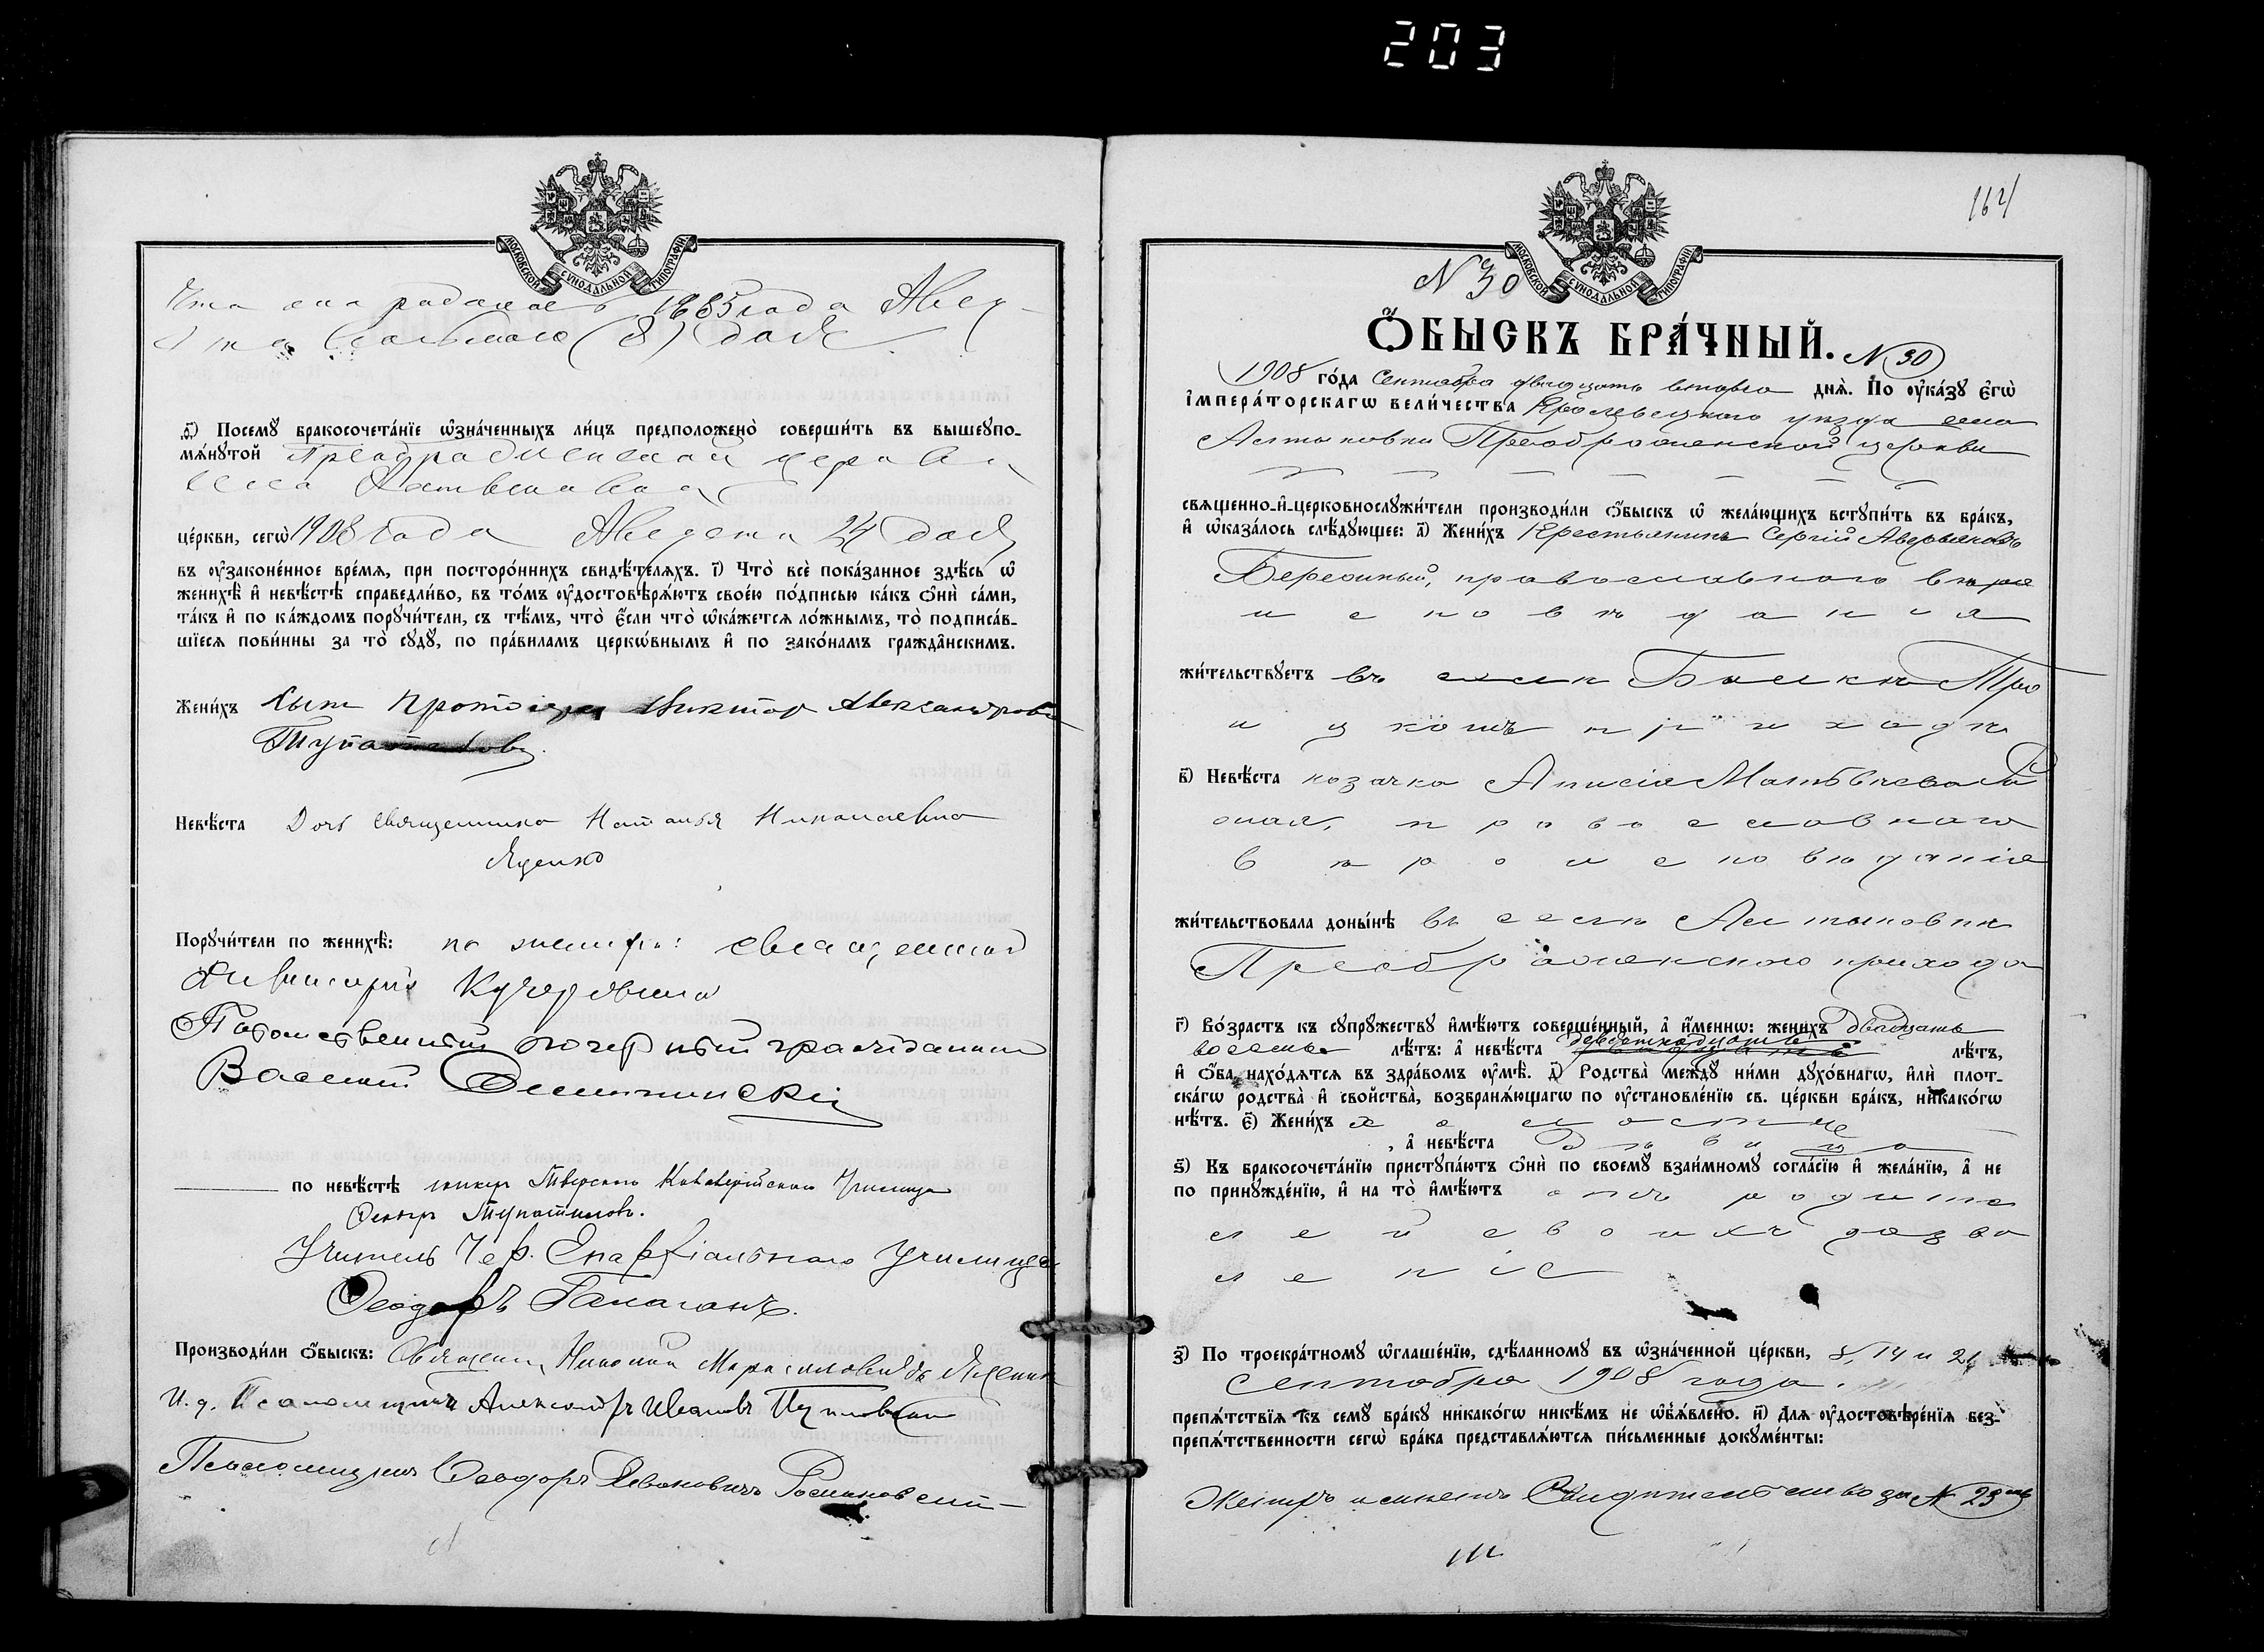 203
МОСКОВСКОЙ СѴНОДАЛЬНОЙ ТИПОГРАФІИ
Что она родилась 1885 года Авгу-
ста восьмого (8) дня
Ѳ҃) Посемꙋ̀ бракосочета́нїе ѡ҆зна́ченныхъ ли́цъ предположено̀ соверши́ть въ вышеꙋпо-
мѧ́нꙋтой Преображенской церкви
села
це́ркви, сегѡ̀ 1908 года Августа 24 дня
въ ᲂу҆законе́нное вре́мѧ, при посторо́ннихъ свидѣ́телѧхъ. І҃) Что̀ всѐ пока́занное здѣ́сь ѡ҆
женихѣ̀ и҆ невѣ́стѣ справедли́во, въ то́мъ ᲂу҆достовѣрѧ́ютъ свое́ю по́дписью ка́къ ѻ҆нѝ са́ми,
та́къ и҆ по ка́ждомъ порꙋчи́тели, съ тѣ́мъ, что̀ є҆́сли что̀ ѡ҆ка́жетсѧ ло́жнымъ, то̀ подписа́в-
шїесѧ пови́нны за то̀ сꙋдꙋ̀, по пра́виламъ церкѡ́внымъ и҆ по зако́намъ гражда́нскимъ.
Жени́хъ Сынъ протоіерея Викторъ Александровъ
Невѣ́ста Дочь священника Наталья Николаевна
Яценко
Порꙋчи́тели по женихѣ̀: по женихѣ: священник
Потомственный почетный гражданинъ
Василій
по невѣ́стѣ юнкеръ Тверского Кавалерійскаго Училища
Учитель Чер. Епархіальнаго Училища
Ѳеодоръ Галаганъ.
Производи́ли ѻ҆́быскъ: Священникъ Николай
И. д. Псаломщика Александръ Ивановъ
Псаломщикъ Ѳеодоръ
164
МОСКОВСКОЙ СѴНОДАЛЬНОЙ ТИПОГРАФІИ
N 30
Ѻ҆́БЫСКЪ БРА́ЧНЫЙ. N 30
1908 го́да Сентября двадцать второго днѧ̀. По ᲂу҆ка́зꙋ є҆гѡ̀
и҆мпера́торскагѡ вели́чества Кролевецкаго уѣзда села
Алтыновки Преображенской церкви
свѧще́нно-и҆-церковнослꙋжи́тели производи́ли ѻ҆́быскъ ѡ҆ жела́ющихъ встꙋпи́ть въ бра́къ,
и҆ ѡ҆каза́лось слѣ́дꙋющее: а҃) Жени́хъ Крестьянинъ Сергій Аверьяновъ
православнаго вѣро
исповѣданія
жи́тельствꙋетъ въ селѣ Тро
ицкомъ приходѣ
в҃) Невѣ́ста козачка Анисія Матвѣева
православнаго
вѣроисповѣданія
жи́тельствовала доны́нѣ въ селѣ Алтыновкѣ
Преображенскаго прихода
г҃) Во́зрастъ къ сꙋпрꙋ́жествꙋ и҆мѣ́ютъ соверше́нный, а҆ и҆́меннѡ: жени́хъ двадцать
восемь лѣ́тъ: а҆ невѣ́ста девятнадцать лѣ́тъ,
и҆ ѻ҆́ба нахо́дѧтсѧ въ здра́вомъ ᲂу҆мѣ̀. д҃) Родства̀ междꙋ̀ ни́ми дꙋхо́внагѡ, и҆лѝ плот-
ска́гѡ родства̀ и҆ сво́йства, возбранѧ́ющагѡ по ᲂу҆становле́нїю св. це́ркви бра́къ, никако́гѡ
нѣ́тъ. є҃) Жени́хъ холостъ
, а҆ невѣ́ста дѣвица
ѕ҃) Къ бракосочета́нїю пристꙋпа́ютъ ѻ҆нѝ по своемꙋ̀ взаи́мномꙋ согла́сїю и҆ жела́нїю, а҆ не
по принꙋжде́нїю, и҆ на то̀ и҆мѣ́ютъ отъ родите
лей своихъ дозво
леніе
з҃) По троекра́тномꙋ ѡ҆глаше́нїю, сдѣ́ланномꙋ въ ѡ҆зна́ченной це́ркви, 8, 14 и 21
Сентября 1908 года.
препѧ́тствїѧ къ семꙋ̀ бра́кꙋ никако́гѡ никѣ́мъ не ѡ҆б̾ѧ́влено. и҃) Длѧ ᲂу҆достовѣре́нїѧ без-
препѧ́тственности сегѡ̀ бра́ка представлѧ́ютсѧ пи́сьменные докꙋме́нты:
Свидѣтельство за N 23